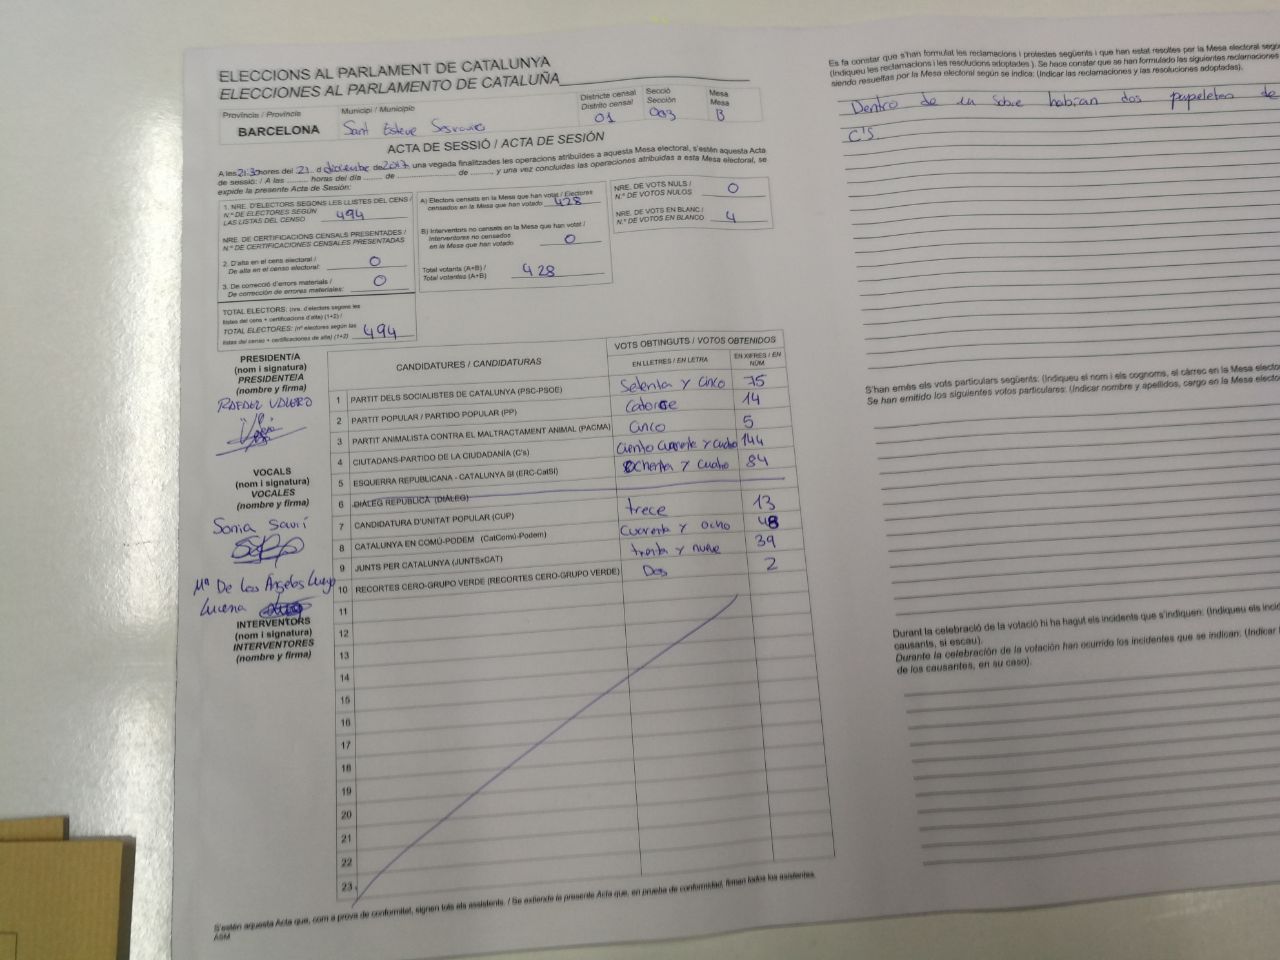 ELECCIONS AL PARLAMENT DE CATALUNYA
ELECCIONES AL PARLAMENTO DE CATALUÑA
Província / Provincia
BARCELONA
Municipi / Municipio
Sant Esteve Sesrovires
Districte censal
Distrito censal
01
Secció
Sección
003
Mesa
Mesa
B
ACTA DE SESSIÓ / ACTA DE SESIÓN
A les 21:30 hores del 21 d diciembre de 2017, una vegada finalitzades les operacions atribuïdes a aquesta Mesa electoral, s'estén aquesta Acta
de sessió: / A las ......... horas del día ......... de ................... de ........., y una vez concluidas las operaciones atribuidas a esta Mesa electoral, se
expide la presente Acta de Sesión:
1. NRE. D'ELECTORS SEGONS LES LLISTES DEL CENS /
N.º DE ELECTORES SEGÚN
LAS LISTAS DEL CENSO 494
NRE. DE CERTIFICACIONS CENSALS PRESENTADES /
N.º DE CERTIFICACIONES CENSALES PRESENTADAS
2. D'alta en el cens electoral /
De alta en el censo electoral: 0
3. De correcció d'errors materials /
De corrección de errores materiales: 0
TOTAL ELECTORS: (nre. d'electors segons les
llistes del cens + certificacions d'alta) (1+2) /
TOTAL ELECTORES: (nº electores según las
listas del censo + certificaciones de alta) (1+2) 494
A) Electors censats en la Mesa que han votat / Electores
censados en la Mesa que han votado 428
B) Interventors no censats en la Mesa que han votat /
Interventores no censados
en la Mesa que han votado 0
Total votants (A+B) /
Total votantes (A+B) 428
NRE. DE VOTS NULS /
N.º DE VOTOS NULOS 0
NRE. DE VOTS EN BLANC /
N.º DE VOTOS EN BLANCO 4
PRESIDENT/A
(nom i signatura)
PRESIDENTE/A
(nombre y firma)
RAFAEL VALERO
VOCALS
(nom i signatura)
VOCALES
(nombre y firma)
Sonia Saurí
Mª De Los Angeles Luego
Lucena
INTERVENTORS
(nom i signatura)
INTERVENTORES
(nombre y firma)
CANDIDATURES / CANDIDATURAS
VOTS OBTINGUTS / VOTOS OBTENIDOS
EN LLETRES / EN LETRA
EN XIFRES / EN NÚM
1 PARTIT DELS SOCIALISTES DE CATALUNYA (PSC-PSOE) Setenta y cinco 75
2 PARTIT POPULAR / PARTIDO POPULAR (PP) Catorce 14
3 PARTIT ANIMALISTA CONTRA EL MALTRACTAMENT ANIMAL (PACMA) Cinco 5
4 CIUTADANS-PARTIDO DE LA CIUDADANÍA (C's) Ciento cuarenta y cuatro 144
5 ESQUERRA REPUBLICANA - CATALUNYA SÍ (ERC-CatSí) Ochenta y cuatro 84
6 DIÀLEG REPUBLICÀ (DIÀLEG)
7 CANDIDATURA D'UNITAT POPULAR (CUP) trece 13
8 CATALUNYA EN COMÚ-PODEM (CatComú-Podem) Cuarenta y ocho 48
9 JUNTS PER CATALUNYA (JUNTSxCAT) treinta y nueve 39
10 RECORTES CERO-GRUPO VERDE (RECORTES CERO-GRUPO VERDE) Dos 2
11
12
13
14
15
16
17
18
19
20
21
22
23
S'estén aquesta Acta que, com a prova de conformitat, signen tots els assistents. / Se extiende la presente Acta que, en prueba de conformidad, firman todos los asistentes.
Es fa constar que s'han formulat les reclamacions i protestes següents i que han estat resoltes per la Mesa electoral
(Indiqueu les reclamacions i les resolucions adoptades ). Se hace constar que se han formulado las siguientes reclamaciones
siendo resueltas por la Mesa electoral según se indica: (Indicar las reclamaciones y las resoluciones adoptadas).
Dentro de un sobre habían dos papeletas de
C'S
S'han emès els vots particulars següents: (Indiqueu el nom i els cognoms, el càrrec en la Mesa
Se han emitido los siguientes votos particulares: (Indicar nombre y apellidos, cargo en la Mesa
Durant la celebració de la votació hi ha hagut els incidents que s'indiquen: (Indiqueu els
causants, si escau).
Durante la celebración de la votación han ocurrido los incidentes que se indican: (Indicar
de los causantes, en su caso).